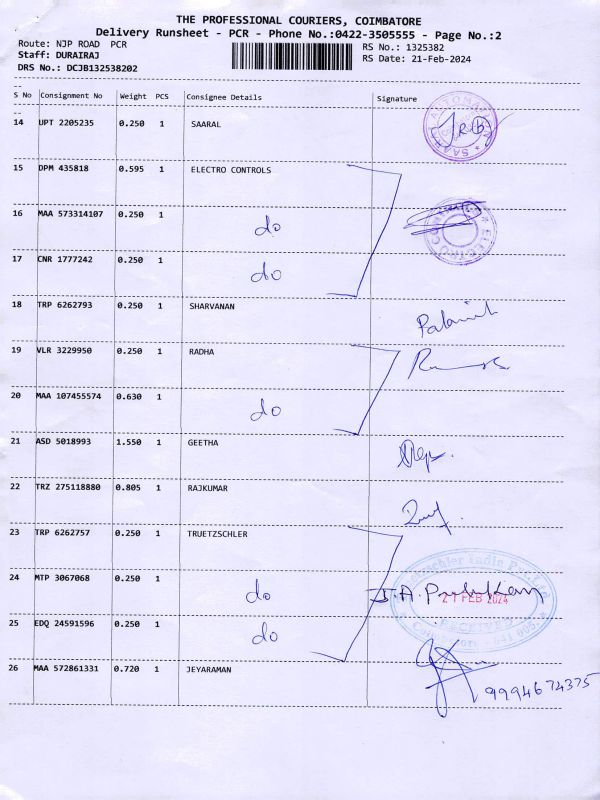 THE PROFESSIONAL COURIERS, COIMBATORE
Delivery Runsheet - PCR - Phone No.:0422-3505555 - Page No.:2
Route: NJP ROAD PCR
RS No.: 1325382
Staff: DURAIRAJ
RS Date: 21-Feb-2024
DRS No.: DCJB132538202
S No Consignment No Weight PCS Consignee Details Signature
14 UPT 2205235 0.250 1 SAARAL
15 DPM 435818 0.595 1 ELECTRO CONTROLS
16 MAA 573314107 0.250 1 do
17 CNR 1777242 0.250 1 do
18 TRP 6262793 0.250 1 SHARVANAN
19 VLR 3229950 0.250 1 RADHA
20 MAA 107455574 0.630 1 do
21 ASD 5018993 1.550 1 GEETHA
22 TRZ 275118880 0.805 1 RAJKUMAR
23 TRP 6262757 0.250 1 TRUETZSCHLER
24 MTP 3067068 0.250 1 do
21 FEB 2024
25 EDQ 24591596 0.250 1 do
RECEIVED
26 MAA 572861331 0.720 1 JEYARAMAN
9994674375